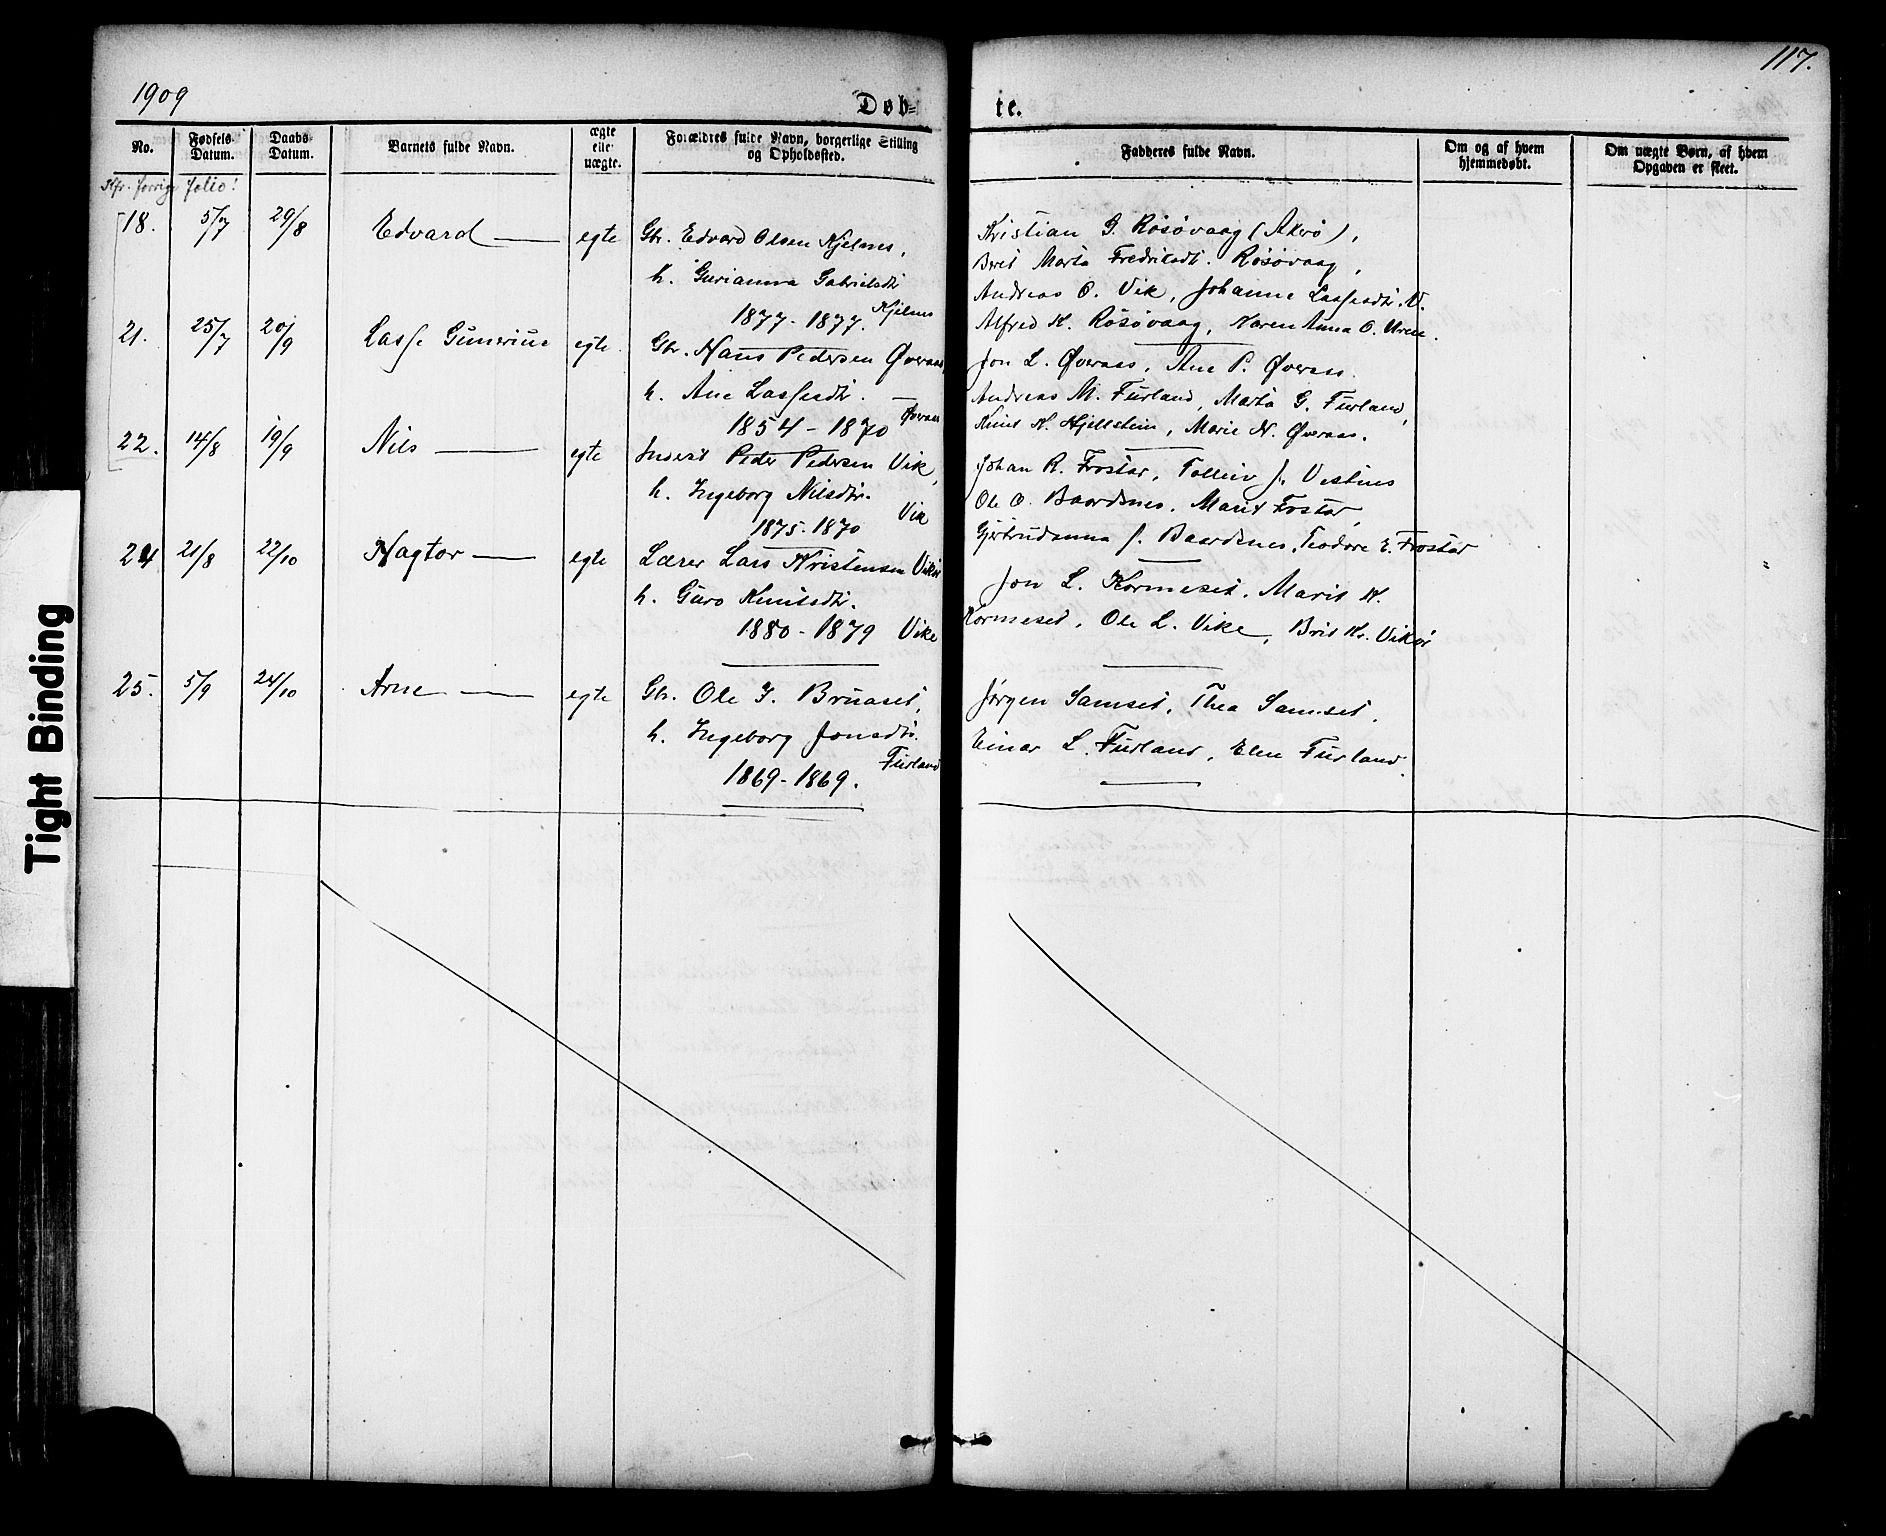 1909
117.
Døb=
te.
No.
Fødsels-
Datum.
Daabs-
Datum.
Barnets fulde Navn.
ægte
eller
uægte.
Forældres fulde Navn, borgerlige Stilling
og Opholdssted.
Fadderes fulde Navn.
Om og af hvem
hjemmedøbt.
Om uægte Børn, af hvem
Opgaven er skeet.
Kfr. forrige folio!
18. 5/7 29/8 Edvard — egte Gbr. Edvard Olsen Kjelnes,
h. Gurianna Gabrielsdtr.
1877-1877. Kjelnes
Kristian G. Røsøvaag (Akerø),
Berit Marta Fredriksdt. Røsøvaag,
Andreas O. Vik, Johanne Lassesdtr. V.
Alfred K. Røsøvaag, Karen Anna O. Urene.
21. 25/7 20/9 Lasse Gunerius egte. Gbr. Hans Pedersen Øveraas,
h. Ane Lassesdtr. —
1854-1870 Øveraas
Jon L. Øveraas, Ane P. Øveraas.
Andreas M. Furland, Marta G. Furland,
Knut K. Hjellstein, Marie N. Øveraas.
22. 14/8 19/9 Nils — egte Inderst Peder Pedersen Vik,
h. Ingeborg Nilsdtr.
1875-1870 Vik
Johan R. Frostar, Tolleiv J. Vestnes
Ole O. Baardsnes, Marit Frostar,
Gjertrudanna J. Baardsnes, Teodore E. Frostar
24 21/8 22/10 Hagtor — egte Lærer Lars Kristensen Vikør
h. Guro Knutsdtr.
1880-1879 Vike
Jon L. Kormeset, Marit K.
Kormeset, Ole L. Vike, Brit Kr. Vikør
25. 5/9 24/10 Arne — egte Gbr. Ole G. Bruaset,
h. Ingeborg Jonsdtr.
1869-1869. Furland
Jørgen Samset, Thea Samset,
Einar L. Furland, Elen Furland.
Tight Binding